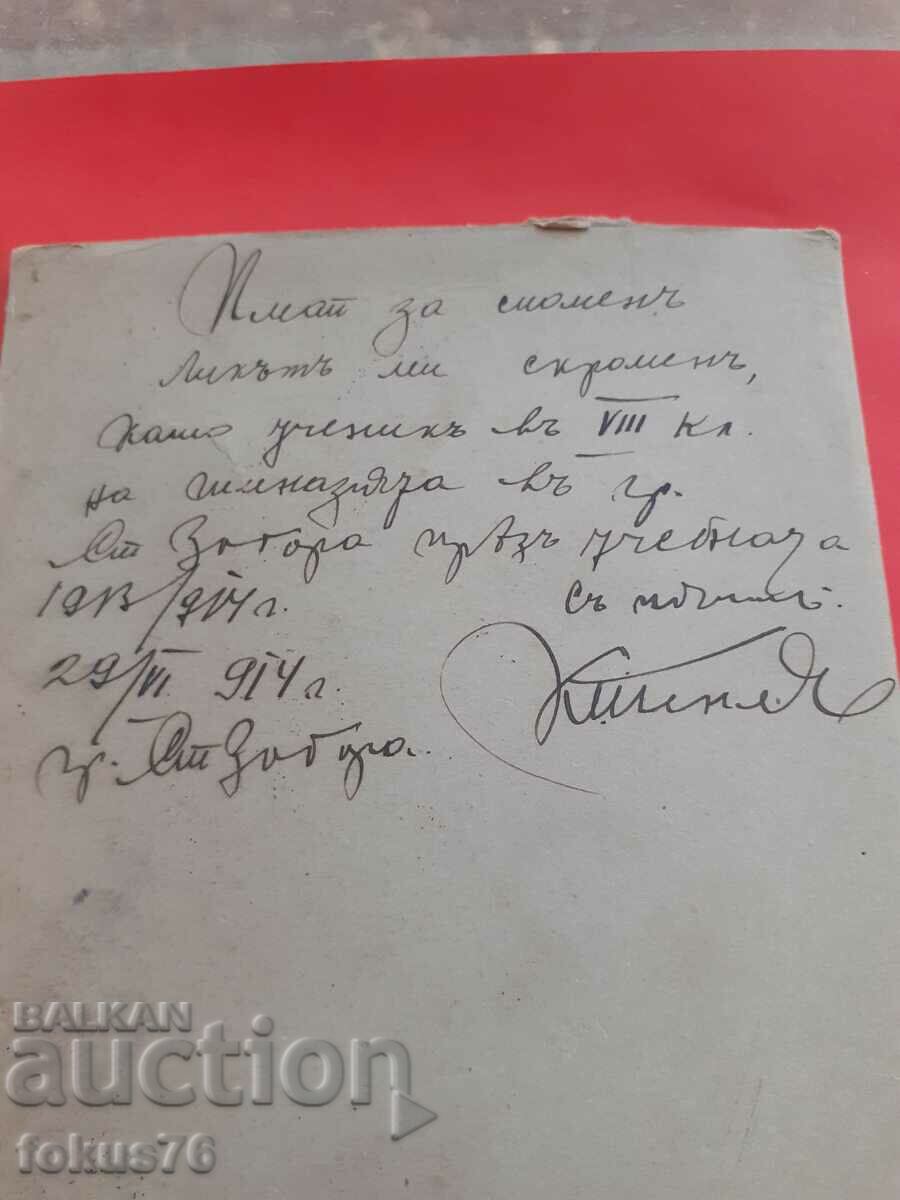 Имай за споменъ
ликътъ ми скроменъ,
като ученикъ въ VIII кл.
на гимназията въ гр.
Ст Загора прѣзъ учебната
1913/914 г. съ почит:
29/VI 914 г.
гр. Ст Загора.
BALKAN
auction
fokus76